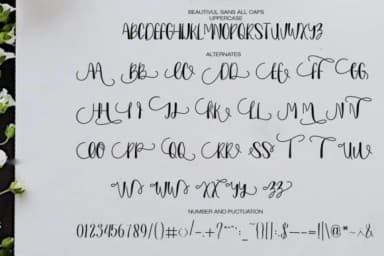 BEAUTIVUL SANS ALL CAPS
UPPERCASE
ABCDEFGHIJKLMNOPQRSTUVWXYZ
ALTERNATES
AA BB CC DD EE FF GG
HH II JJ KK LL MM NN
OO PP QQ RR SS T T UU
VV WW XX YY ZZ
NUMBER AND PUCTUATION
0123456789